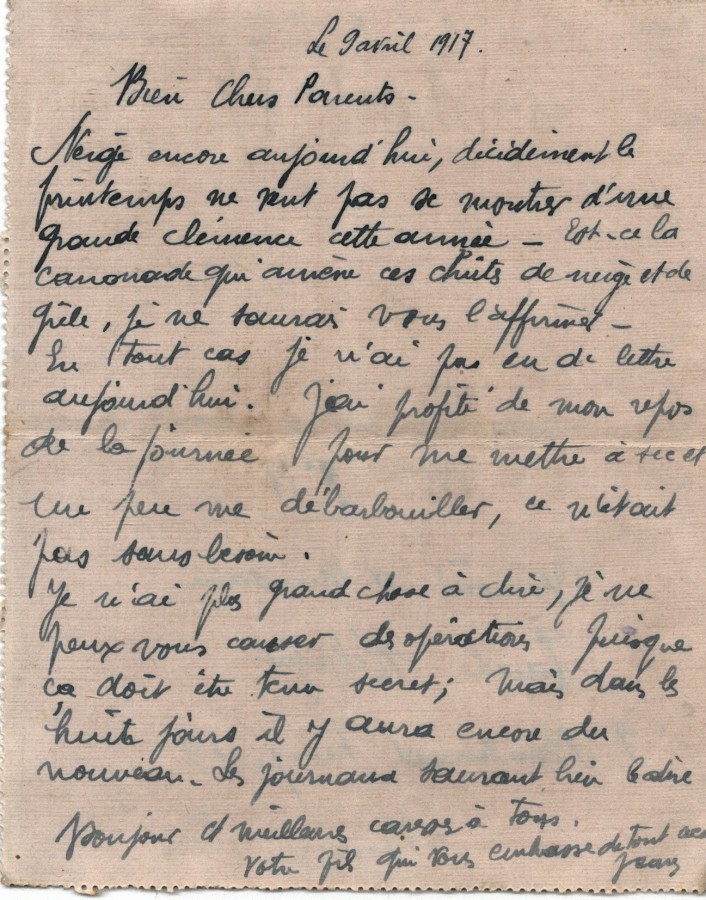 Le 9 avril 1917.
Bien Chers Parents -
Neige encore aujourd'hui, décidément le
printemps ne veut pas se montrer d'une
grande clémence cette année - Est-ce la
canonade qui amène ces chûts de neige et de
grêle, je ne saurais vous l'affirmer -
En tout cas je n'ai pas eu de lettre
aujourd'hui. J'ai profité de mon repos
de la journée pour me mettre à sec et
un peu me débarbouiller, ce n'était
pas sans besoin.
Je n'ai plus grand chose à dire, je ne
peux vous causer des opérations puisque
ça doit être tenu secret; mais dans les
huit jours il y aura encore du
nouveau - Les journaux sauront bien le dire
Bonjour et meilleures caresses à tous.
Votre fils qui vous embrasse de tout
Jean